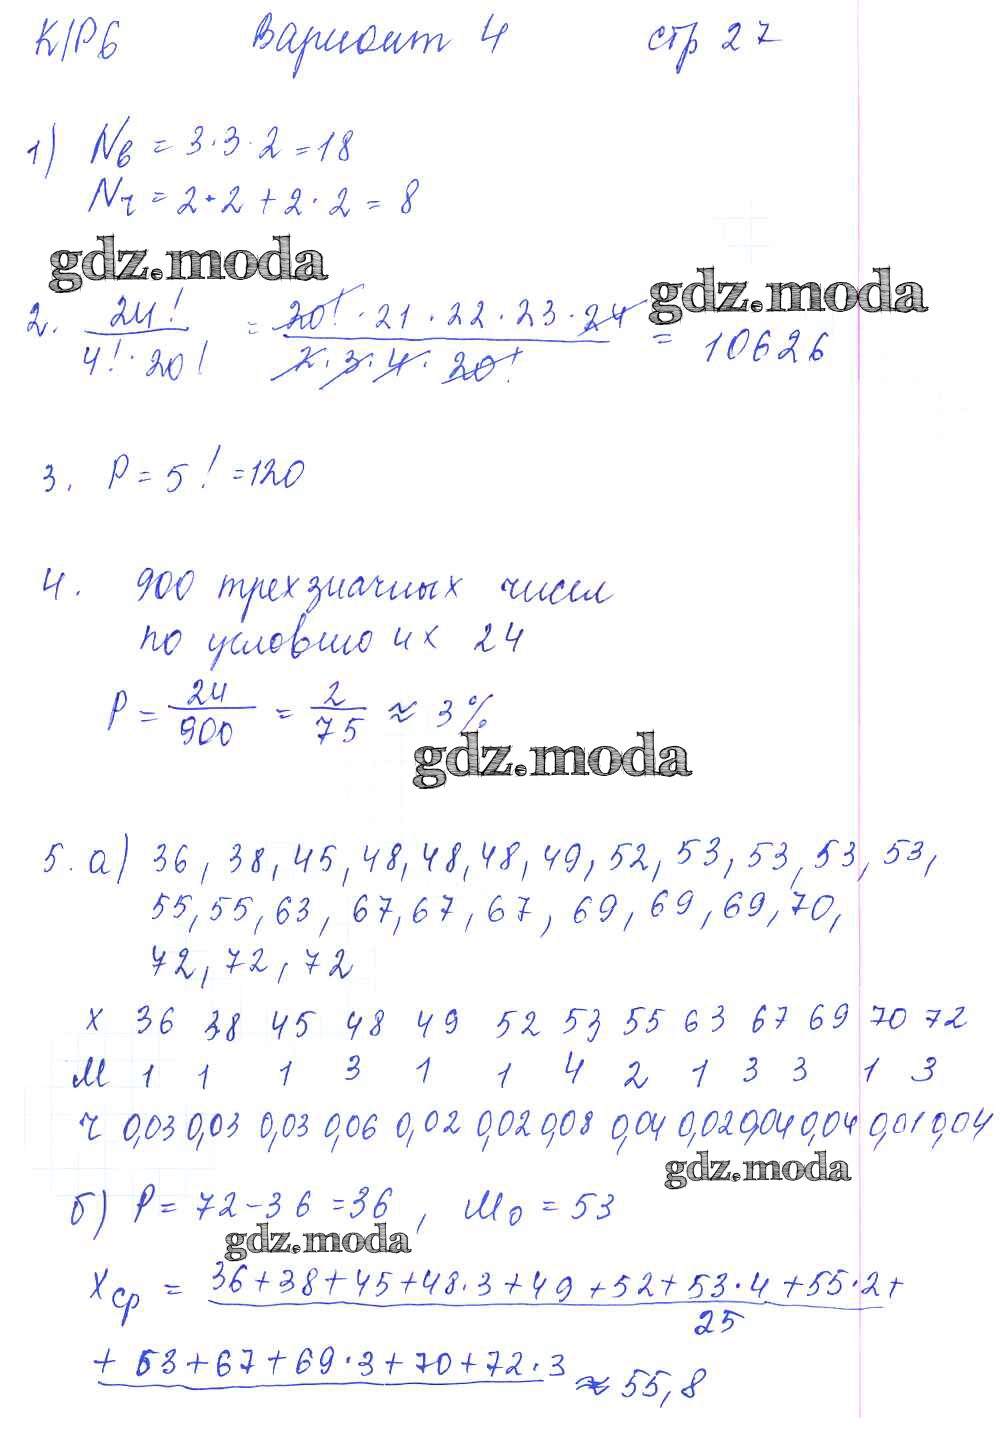 К/Р6 Вариант 4 стр 27
1) Nв = 3·3·2=18
Nч = 2·2+2·2=8
gdz.moda
gdz.moda
2. 24!/(4!·20!) = (20!·21·22·23·24)/(2·3·4·20!) = 10626
3. P=5!=120
4. 900 трехзначных чисел
по условию их 24
P = 24/900 = 2/75 ≈ 3%
gdz.moda
5. а) 36, 38, 45, 48, 48, 48, 49, 52, 53, 53, 53, 53,
55, 55, 63, 67, 67, 67, 69, 69, 69, 70,
72, 72, 72
X 36 38 45 48 49 52 53 55 63 67 69 70 72
M 1 1 1 3 1 1 4 2 1 3 3 1 3
ч 0,03 0,03 0,03 0,06 0,02 0,02 0,08 0,04 0,02 0,04 0,04 0,01 0,04
gdz.moda
б) P = 72-36=36, M₀ = 53
gdz.moda
Xср = 36+38+45+48·3+49+52+53·4+55·2+
25
+63+67+69·3+70+72·3 ≈ 55,8